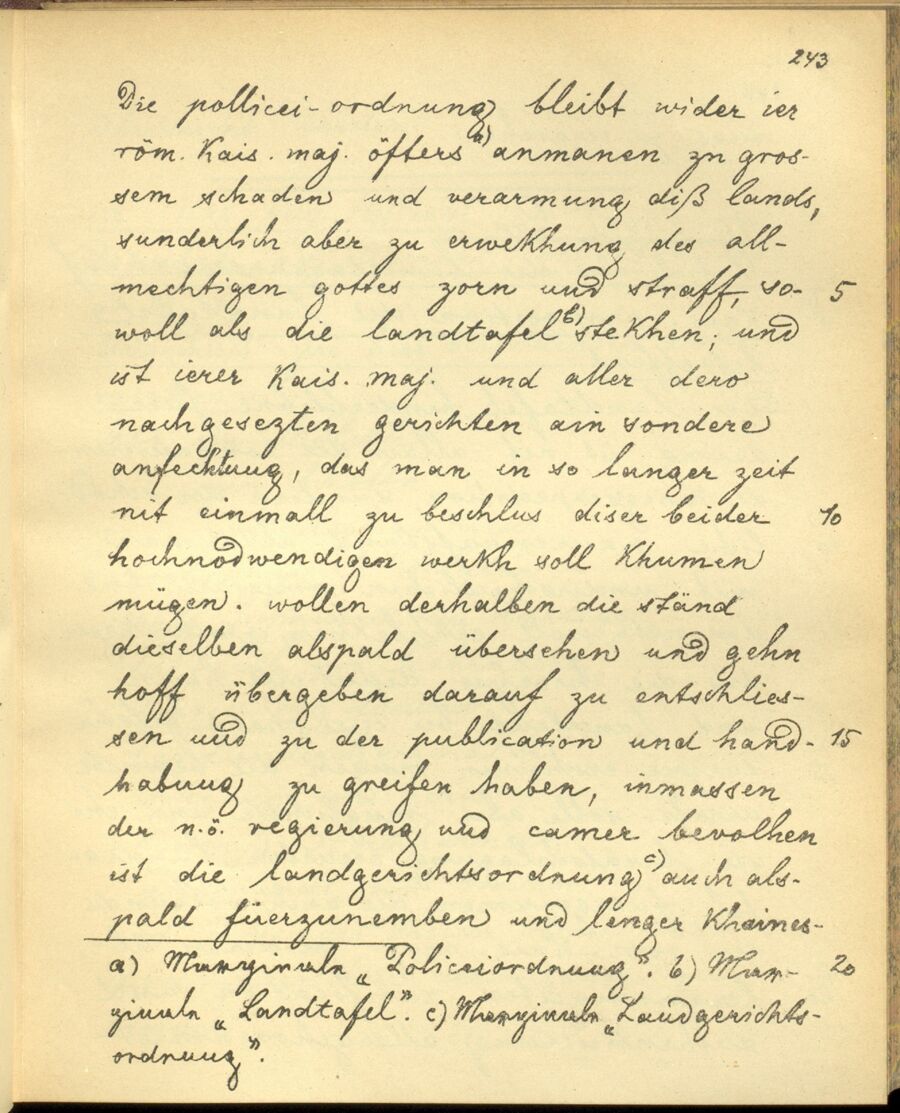 243
Die pollicei-ordnung bleibt wider ier
röm. Kais. maj. öfters a) anmanen zu gros-
sem schaden und verarmung diß lands,
sunderlich aber zu erwekhung des all-
mechtigen gottes zorn und straff, so- 5
woll als die landtafel b) stekhen; und
ist ierer Kais. maj. und aller dero
nachgesezten gerichten ain sondere
anfechtung, das man in so langer zeit
nit einmall zu beschlus diser beider 10
hochnodwendigen werkh soll khumen
mügen. wollen derhalben die ständ
dieselben alspald übersehen und gehn
hoff übergeben darauf zu entschlies-
sen und zu der publication und hand- 15
habung zu greifen haben, inmassen
der n.ö. regierung und camer bevolhen
ist die landgerichtsordnung c) auch als-
pald füerzunemben und lenger khaines-
a) Marginaln „Policeiordnung". b) Mar- 20
ginaln „Landtafel". c) Marginaln „Landgerichts-
ordnung".